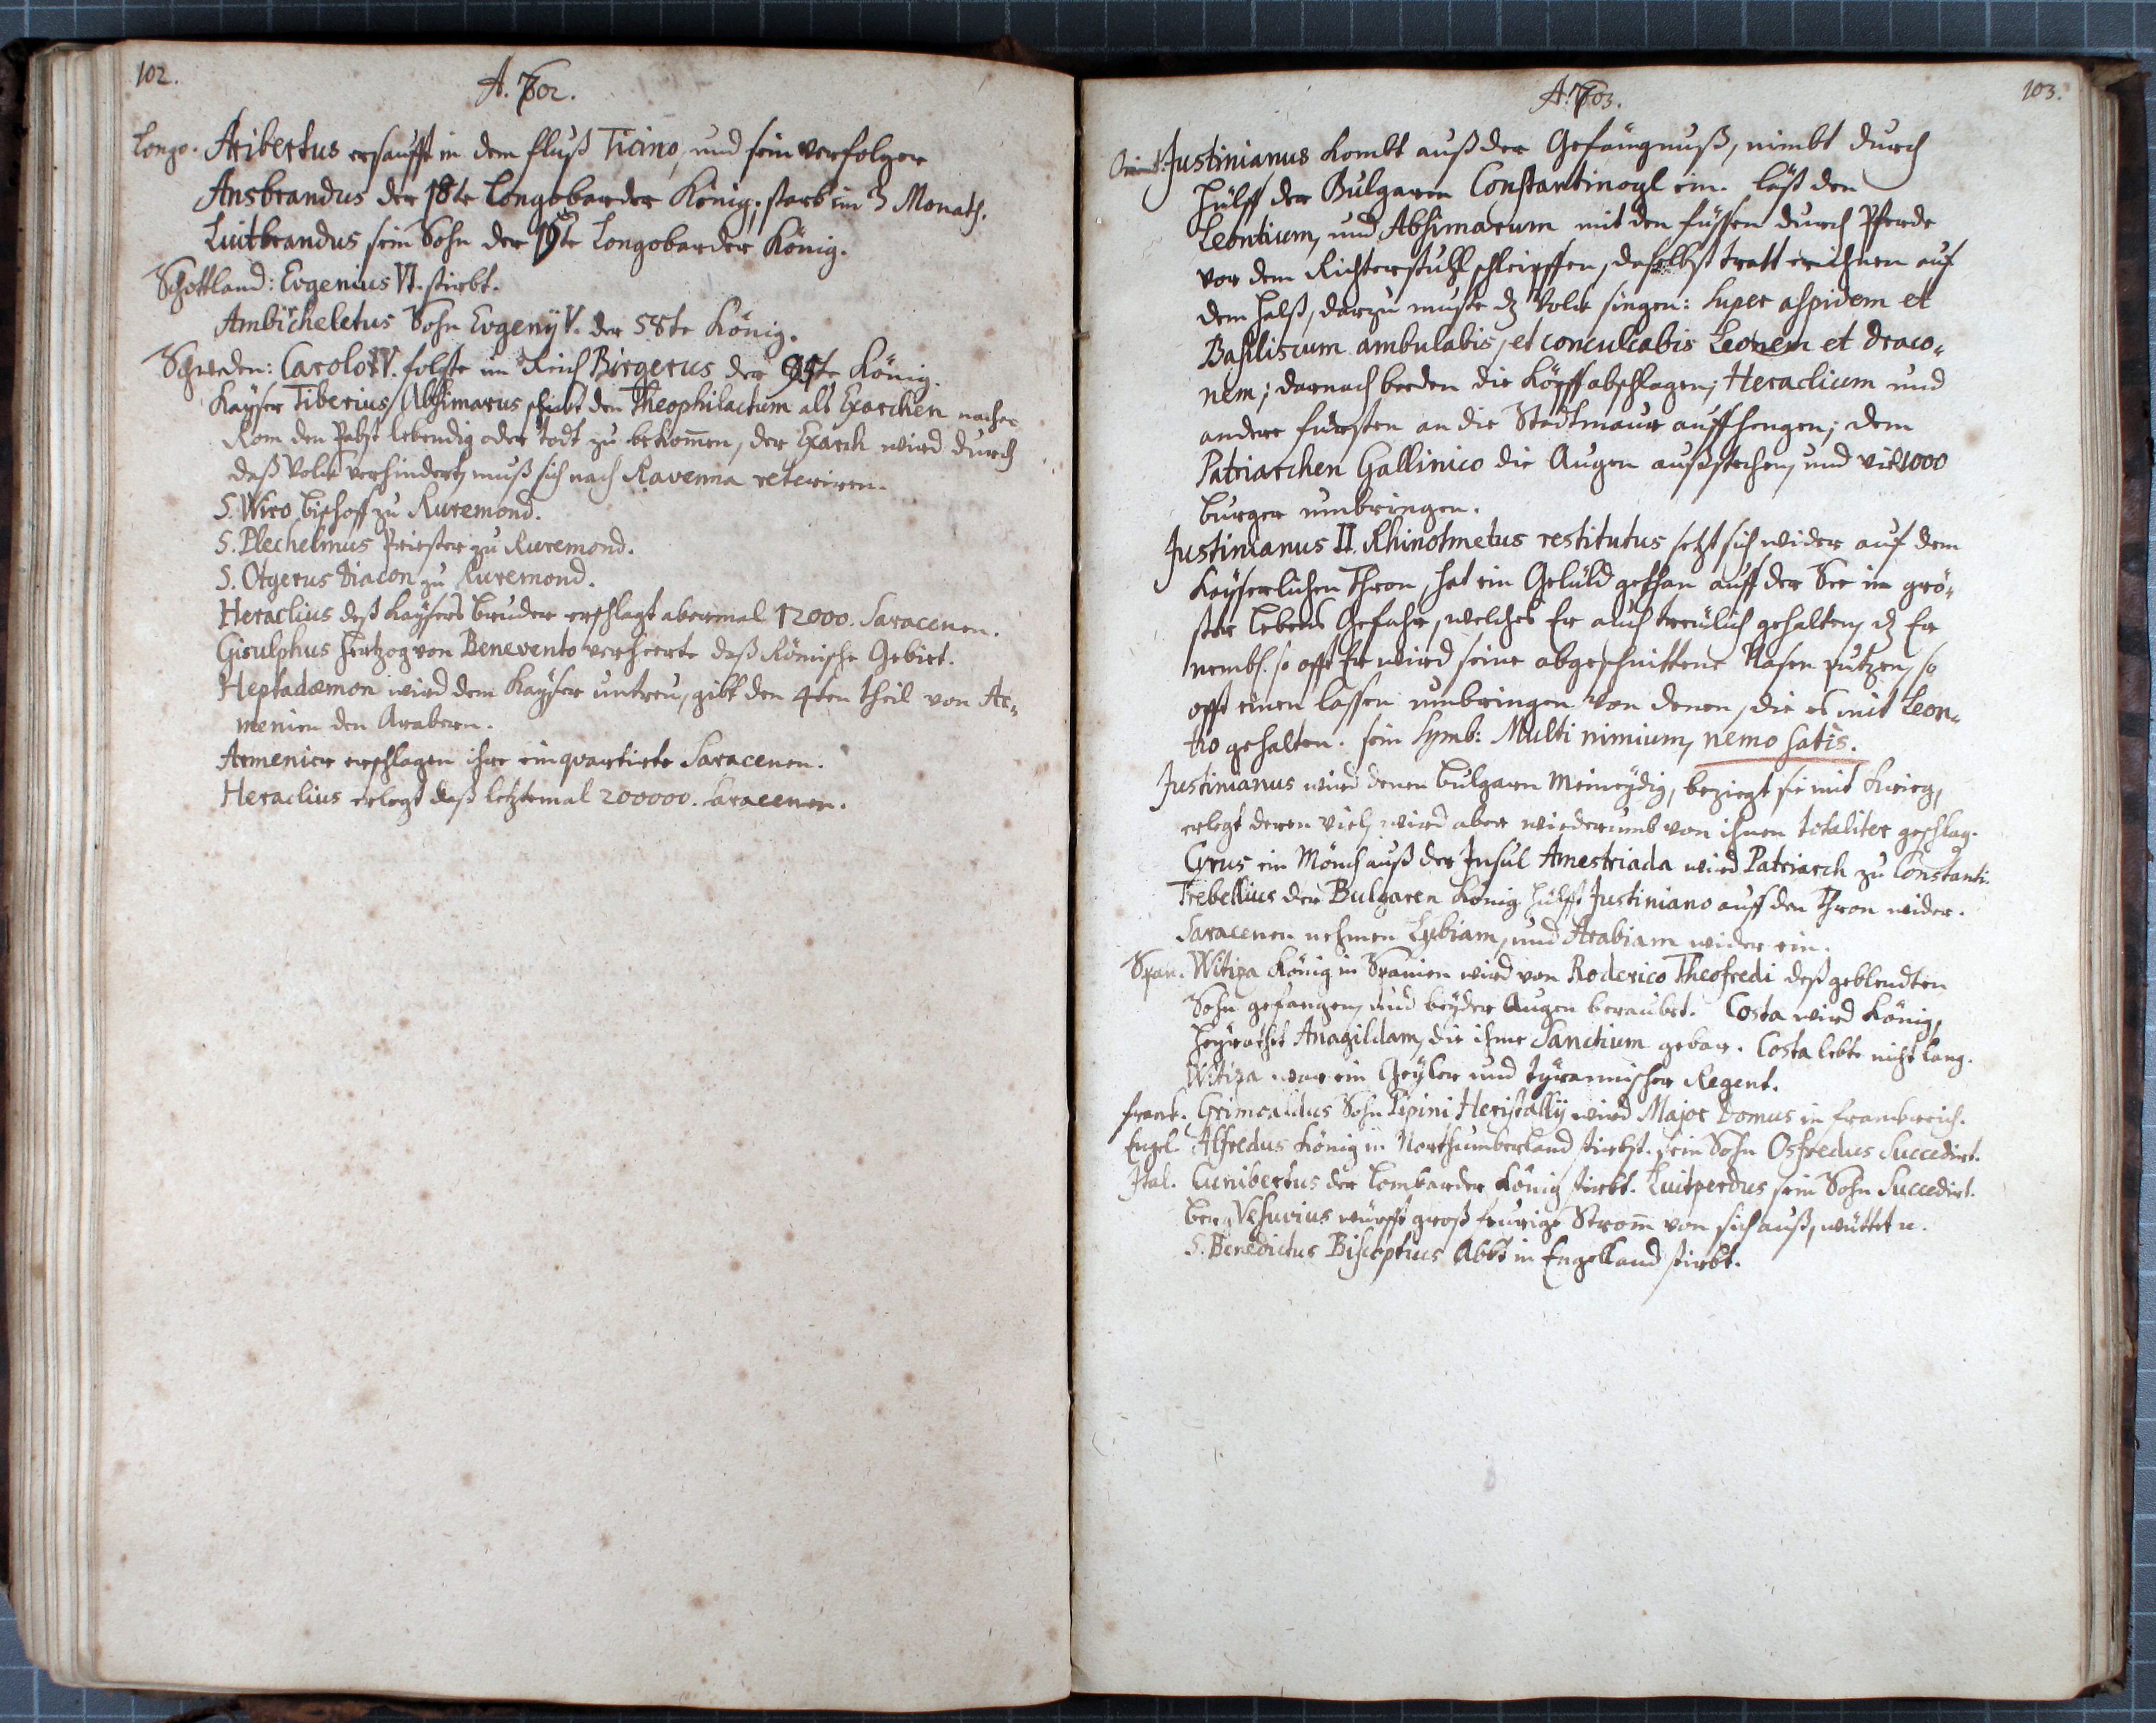 102.
A. 702.
Longo. Aribertus ersaufft in dem fluß Ticino, und sein verfolger
Ansbrandus der 18te Longobarder König, starb im 3 Monath.
Luitbrandus sein Sohn der 19te Longobarder König.
Schottland: Evgenius VI. stirbt.
Ambicheletus Sohn Evgenÿ V. der 58te König.
Schweden: Carolo IV. folgte im Reich Birgerus der 95te König.
Kaÿser Tiberius Absimarus schickt den Theophilactum als Exarchen nacher
Rom den Pabst lebendig oder todt zu bekommen, der Exarch wird durch
daß Volck verhindert, muß sich nach Ravenna reteriren.
S. Wiro Bischoff zu Ruremond.
S. Plechelmus Priester zu Ruremond.
S. Otgerus Diacon zu Ruremond.
Heraclius deß Kaÿsers bruder erschlagt abermal 12000. Saracenen.
Gisulphus Hertzog von Benevento verheerte daß Römische Gebiet.
Heptadæmon wird dem Kaÿser untreu, gibt den 4ten theil von Ar-
menien den Arabern.
Armenier erschlagen ihre einquartirte Saracenen.
Heraclius erlegt daß letztemal 200000. Saracenen.
103.
A. 703.
Orient. Justinianus kombt auß der Gefängnuß, nimbt durch
Hülff der Bulgaren Constantinopl ein. läst den
Leontium, und Absimarum mit den füssen durch Pferde
vor dem Richterstuhl schleiffen, daselbst tratt er ihnen auf
dem Halß, darzu muste dz Volck singen: Super aspidem et
Basiliscum ambulabis, et conculcabis Leonem et draco-
nem; darnach beeden die Köpff abschlagen; Heraclium und
andere fürsten an die Stadtmaur auffhengen; dem
Patriarchen Gallinico die Augen außstechen, und viel 1000
burger umbringen.
Justinianus II. Rhinotmetus restitutus setzt sich wider auf dem
Kaÿserlichen Thron, hat ein Gelübd gethan auff der See in grö-
ster Lebens Gefahr, welches Er auch treulich gehalten, dz Er
nembl. so offt Er wird seine abgeschnittene Nasen putzen, so
offt einen lassen umbringen von denen, die es mit Leon-
tio gehalten. sein Symb: Multi nimium, nemo satis.
Justinianus wird denen Bulgaren meineÿdig, bekriegt sie mit Krieg,
erlegt deren viel, wird aber wiederumb von ihnen totaliter geschlag.
Cyrus ein Mönch auß der Insul Amestriada wird Patriarch zu Constanti.
Trebellius der Bulgaren König hülfft Justiniano auff den Thron wider.
Saracenen nehmen Lybiam, und Arabiam wider ein.
Span. Witiza König in Spanien wird von Roderico Theofredi deß geblendten
Sohn gefangen, und beÿder Augen beraubet. Costa wird König,
heÿrathet Anagildam, die ihme Sanctium gebar. Costa lebte nicht lang.
Witiza war ein Geÿler und tÿrannischer Regent.
Franck. Grimoaldus Sohn Pipini Heristallÿ wird Major Domus in Franckreich.
Engel. Alfredus König in Northumberland stirbt. sein Sohn Osfredus Succedirt.
Ital. Cunibertus der Lombarder König stirbt. Luitperdus sein Sohn Succedirt.
Berg Vesuvius würfft groß feurige Strom von sich auß, wüttet
S. Benedictus Biscoptius Abbt in Engelland stirbt.